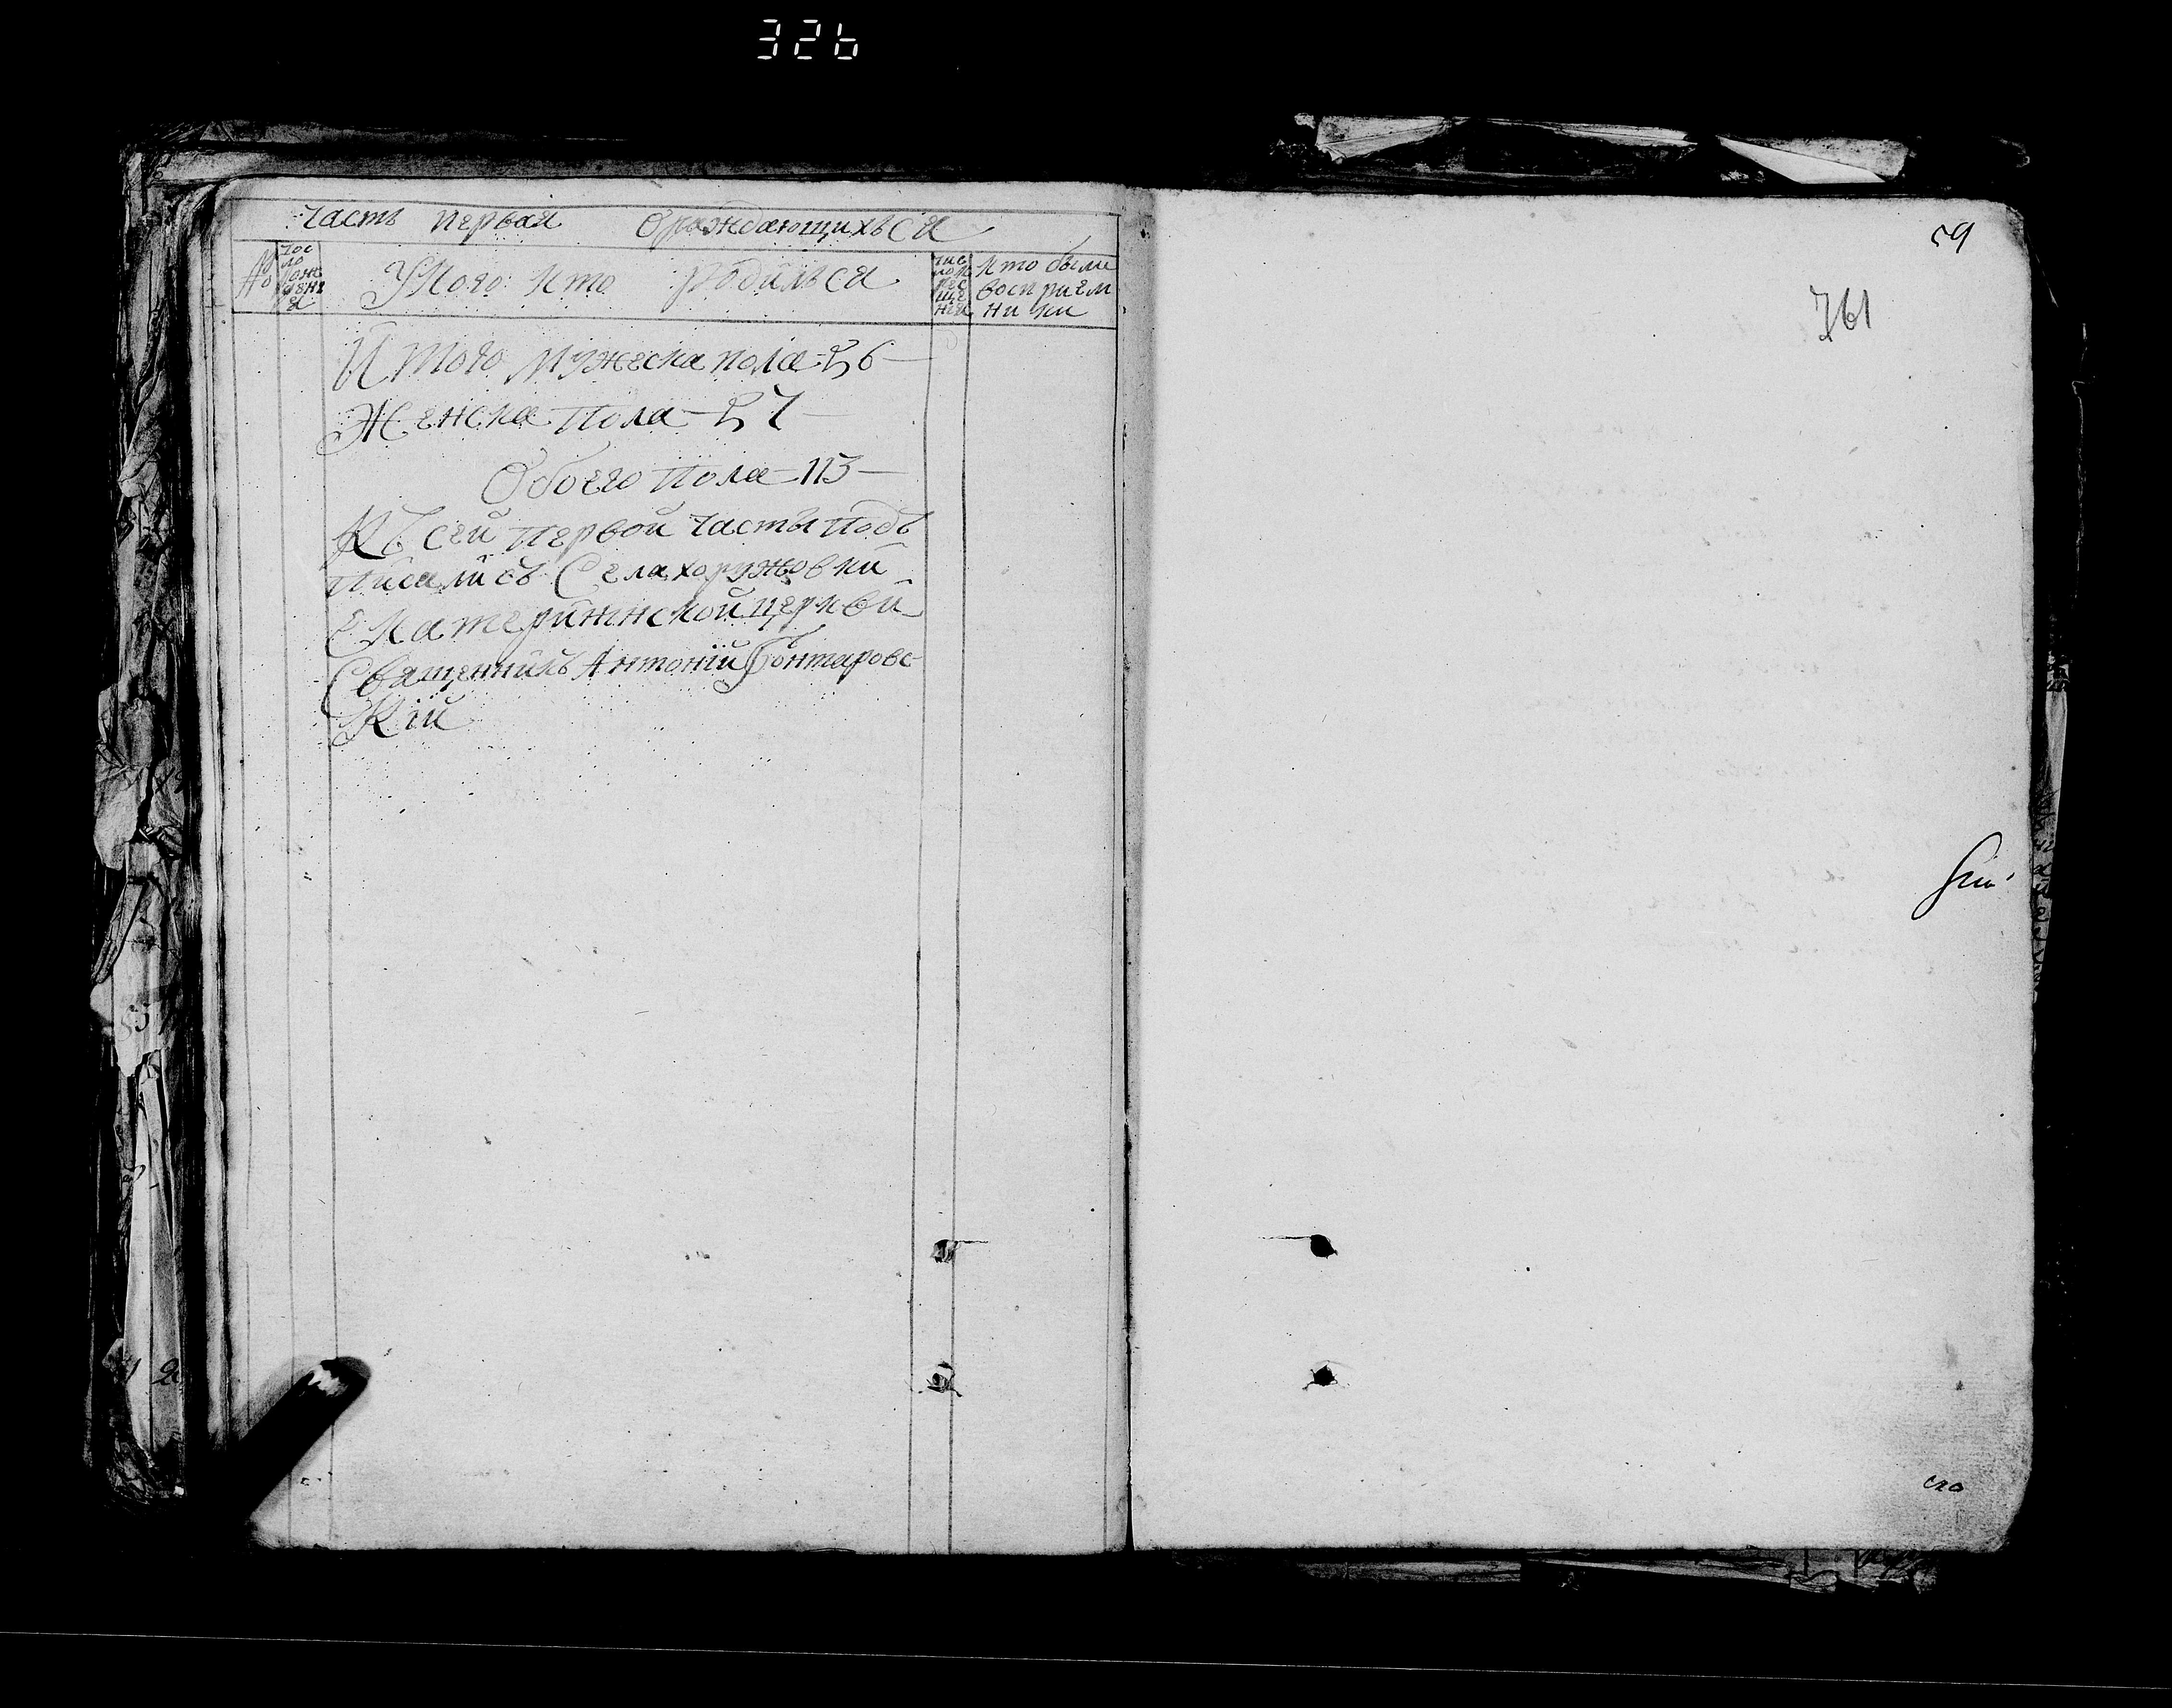 326
Часть первая о раждающихъся
№
Чос
ло
рожд
дени
я
У Кого кто родилъся
чис
ло к
рес
ще
нїя
кто были
восприем
ники
Итого мужеска пола 56
Женска пола 57
Обоего пола 113
Къ сей первой части подъ
писались Села хоружовки
Екатерининской церкви
Священникъ Антонїй Бонтаровс
Кїй
59
761